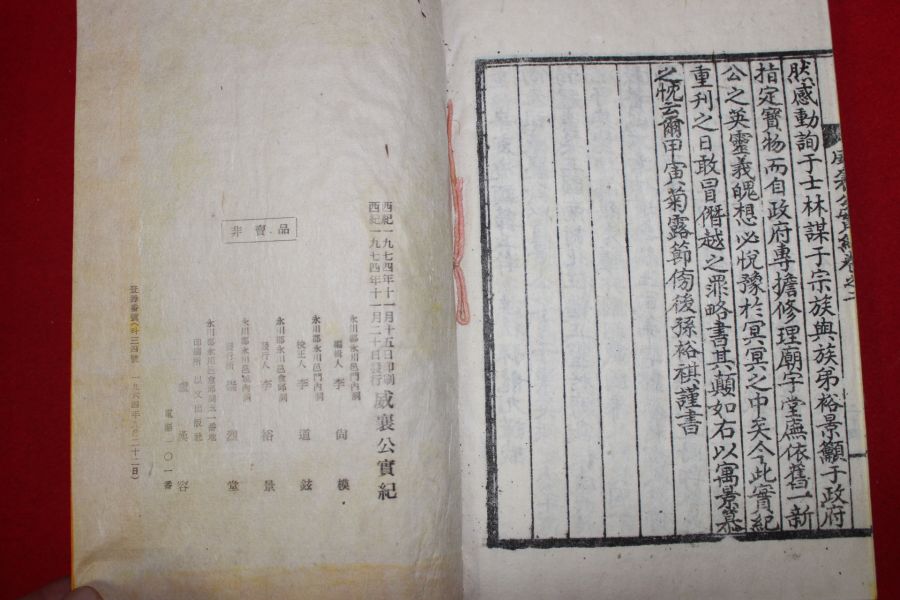 然感動詢于士林謀于宗族與族弟裕景籲于政府
指定寶物而自政府專擔修理廟宇堂廡依舊一新
公之英靈義魄想必悅豫於冥冥之中矣今此實紀
重刊之日敢冒僭越之罪略書其顚如右以寓景慕
之忱云爾甲寅菊露節傍後孫裕祺謹書
西紀一九七四年十一月十五日印刷
西紀一九七四年十一月二十日發行
威襄公實紀
非賣品
永川郡永川邑門內洞
編輯人 李尙模
永川郡永川邑門內洞
校正人 李道鉉
永川郡永川邑倉邱洞
發行人 李裕景
永川郡永川邑城內洞
發行所 烈堂
永川郡永川邑倉邱洞五一番地
印刷所 以文出版社
漢容
電話二〇一番